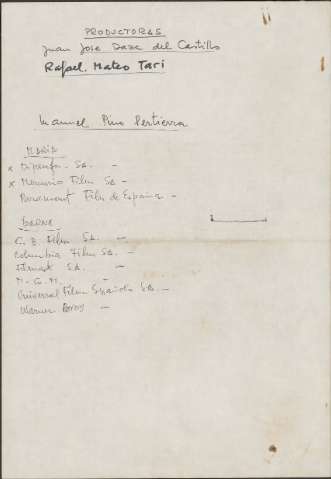 PRODUCTORAS
Juan José Daza del Castillo
Rafael Mateo Tari
Manuel Pino Pertierra
MADRID
x Dipenfa SA. -
x Mercurio Films SA -
Paramount Films de España -
BARNA
C. B. Films SA. -
Columbia Films SA. -
Filmax SA. -
M. G. M. -
Universal Films Española SA. -
Warner Bros -